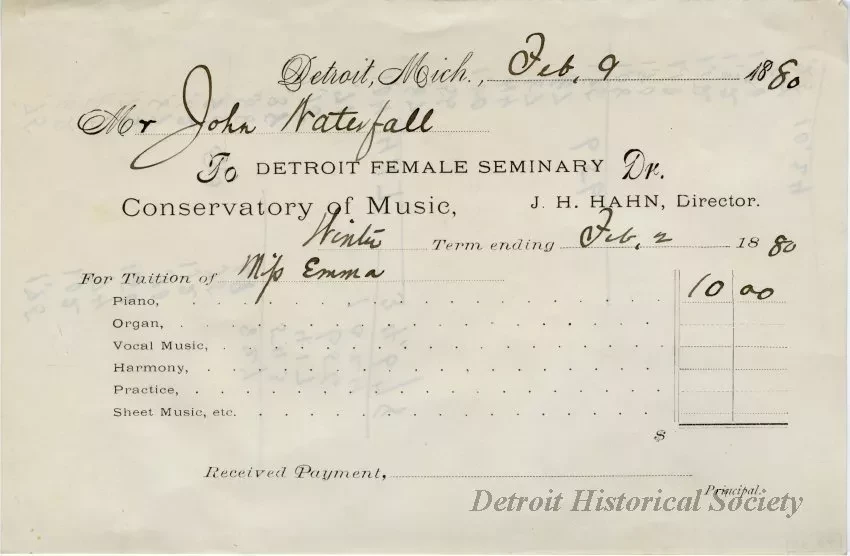 Detroit, Mich., Feb, 9 1880
Mr John Waterfall
To DETROIT FEMALE SEMINARY Dr.
Conservatory of Music, J. H. HAHN, Director.
Winter Term ending Feb, 2 1880
For Tuition of Miss Emma
Piano, 10 00
Organ,
Vocal Music,
Harmony,
Practice,
Sheet Music, etc.
$
Received Payment,
Principal.
Detroit Historical Society